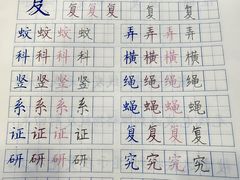 复 复 复 复 复 复
蚊 蚊 蚊 蚊 弄 弄 弄 弄
科 科 科 科 横 横 横 横
竖 竖 竖 竖 绳 绳 绳 绳
系 系 系 系 蝇 蝇 蝇 蝇
证 证 证 证 复 复 复 复
研 研 研 研 究 究 究 究